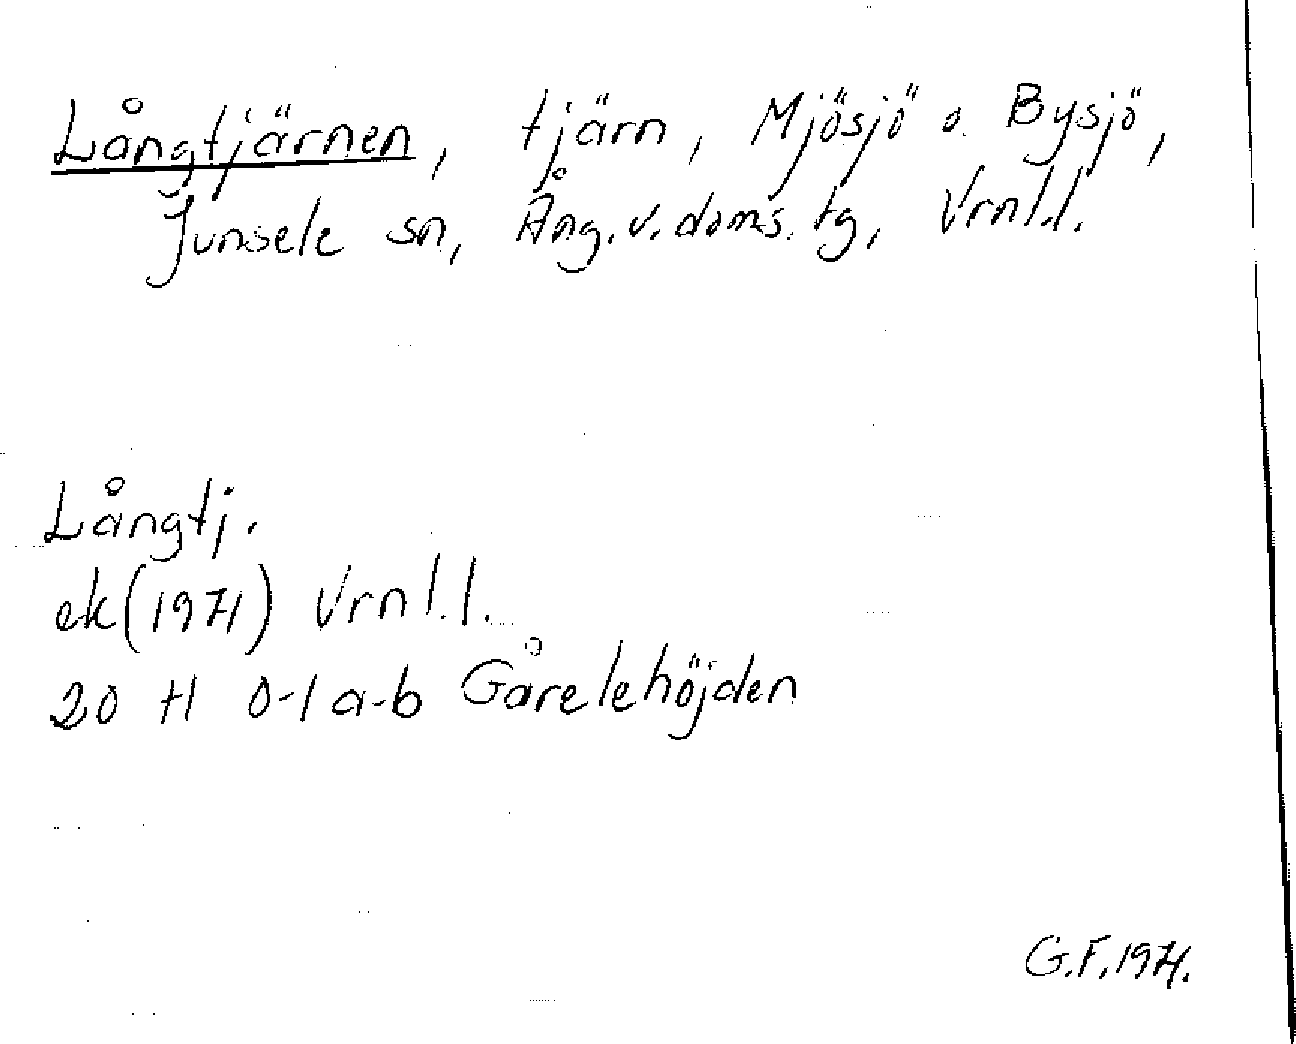 Långtjärnen, tjärn, Mjösjö o. Bysjö,
Junsele sn, Ång.v.doms.tg, Vrnl.l.
Långtj.
ek(1971) Vrnl.l.
20 H 0-1 a-b Gårelehöjden
G.F.1971.